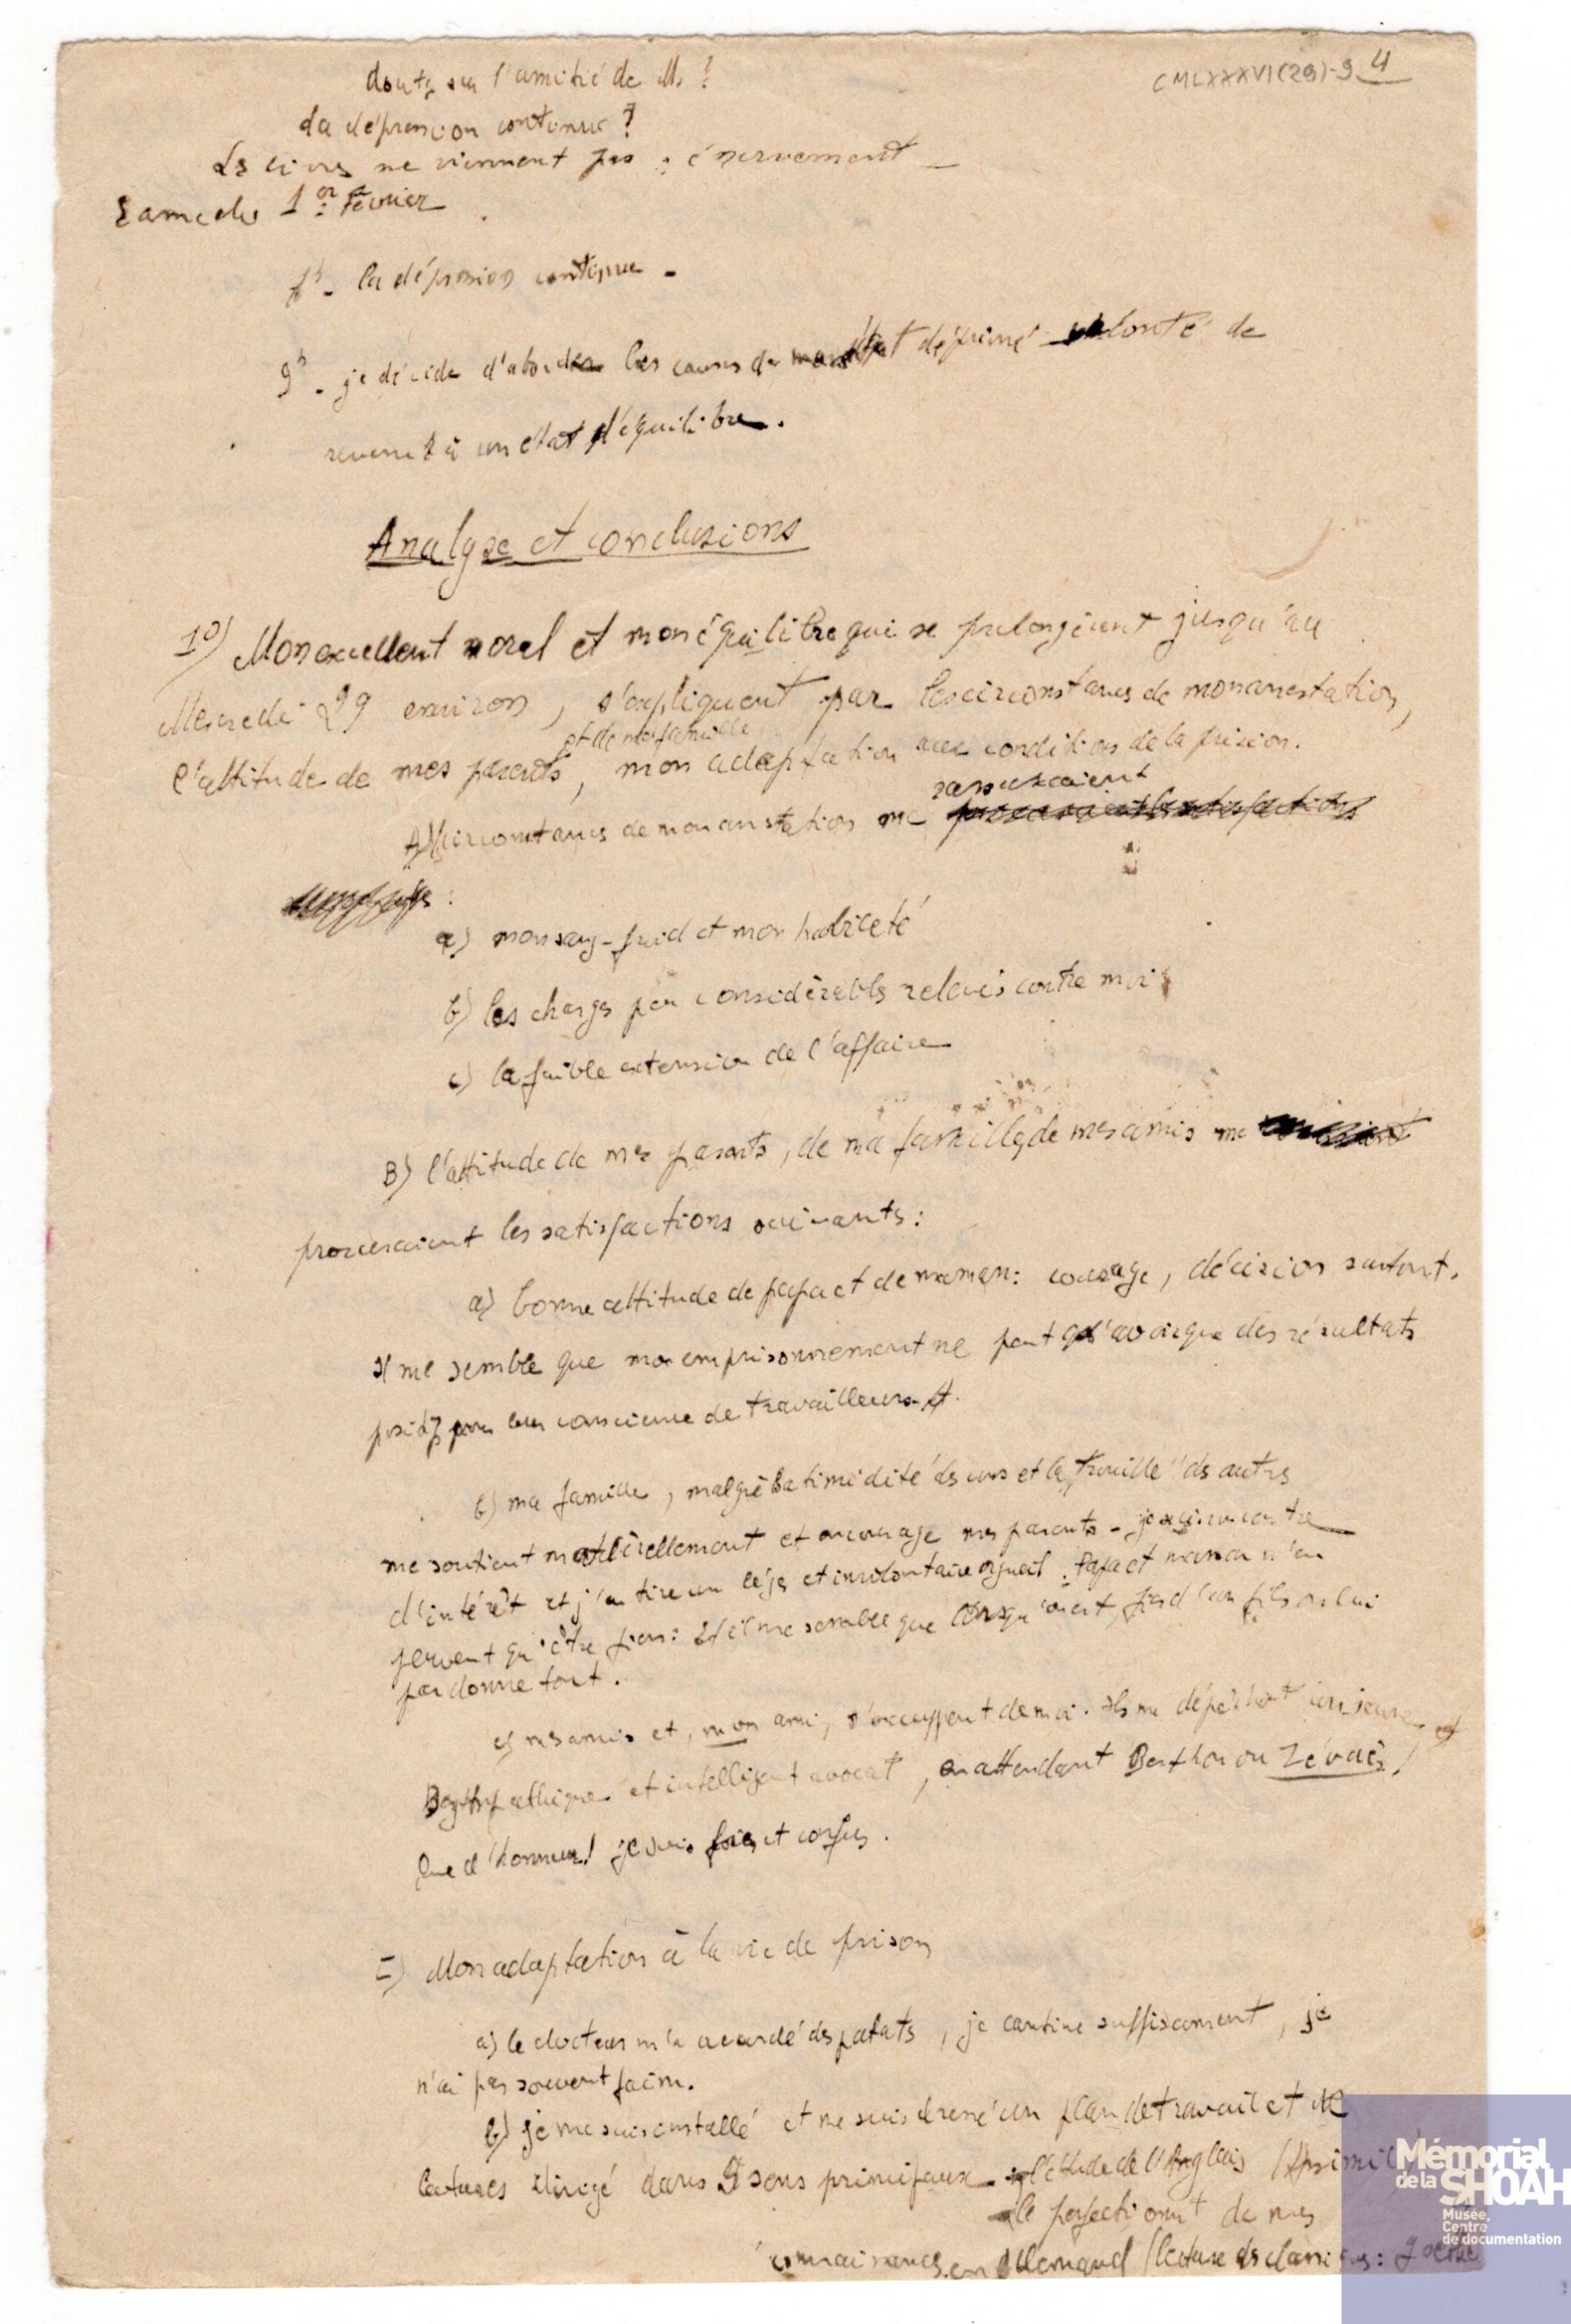 CMLXXXVI(29)-9 4
doute sur l'amitié de M. ?
la dépression continue ?
Les livres ne viennent pas : énervement —
Samedi 1er Février
la dépression continue -
9h - je décide d'aborder les causes de mon état déprimé volonté de
revenir à un état d'équilibre.
Analyse et conclusions
1°) Mon excellent moral et mon équilibre qui se prolongèrent jusqu'au
Mercredi 29 environ, s'expliquent par les circonstances de mon arrestation,
et de ma famille
l'attitude de mes parents, mon adaptation aux conditions de la prison.
rassuraient
A) Circonstances de mon arrestation me procuraient les satisfactions
:
a) mon sang-froid et mon habileté
b) les charges peu considérables relevés contre moi
c) la faible extension de l'affaire
B) l'attitude de mes parents, de ma famille, de mes amis me
procuraient les satisfactions suivantes :
a) bonne attitude de papa et de maman : courage, décision surtout.
Il me semble que mon emprisonnement ne peut avoir que des résultats
positifs pour leur conscience de travailleurs.
b) ma famille, malgré la timidité des uns et la "trouille" des autres
me soutient matériellement et encourage mes parents - je suis un centre
d'intérêt et j'en tire un léger et involontaire orgueil. Papa et maman n'en
peuvent qu'être fiers : Et il me semble que lorsqu'on est fier d'un fils on lui
pardonne tout.
c) mes amis et, mon ami, s'occupent de moi. Ils me dépêchent un jeune, et
sympathique et intelligent avocat, en attendant Berthon ou Zévaès !
Que d'honneur ! je suis fier et confus.
C) Mon adaptation à la vie de prison
a) le docteur m'a accordé des patates, je cantine suffisamment, je
n'ai pas souvent faim.
b) je me suis installé et me suis dressé un plan de travail et de
lectures dirigé dans 2 sens principaux - l'étude de l'Anglais
- le perfectionnt de mes
connaissances en Allemand (lecture des classiques : Goethe
Mémorial
de la SHOAH
Musée,
Centre
de documentation